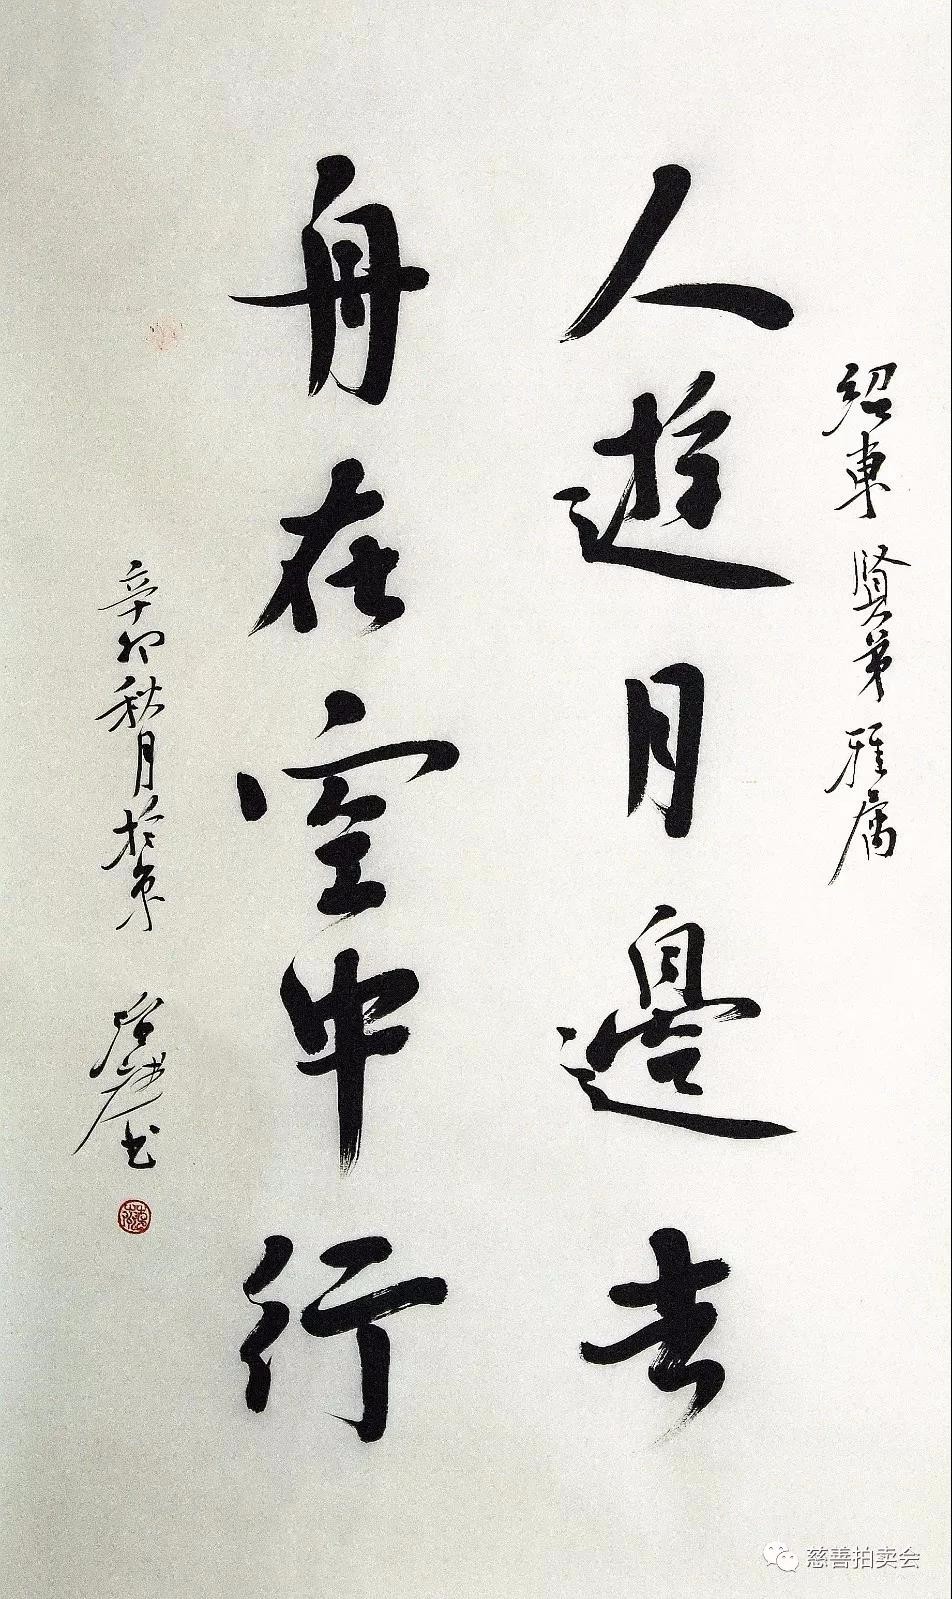 紹東賢弟雅属
人遊月邊去
舟在空中行
辛卯秋月於京
書
慈善拍卖会